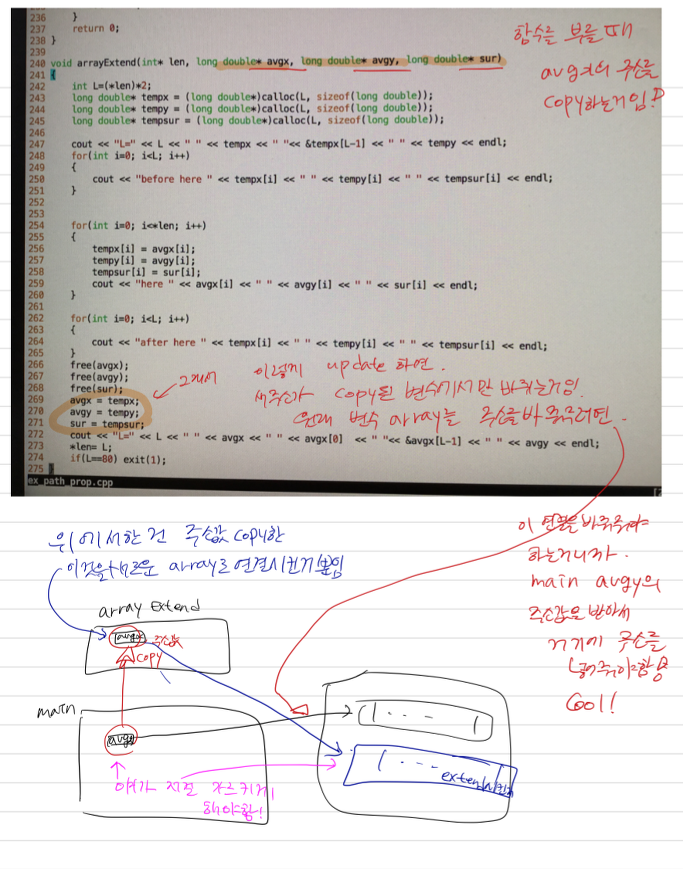 236 }
237 return 0;
238 }
239
240 void arrayExtend(int* len, long double* avgx, long double* avgy, long double* sur)
241 {
242 int L=(*len)*2;
243 long double* tempx = (long double*)calloc(L, sizeof(long double));
244 long double* tempy = (long double*)calloc(L, sizeof(long double));
245 long double* tempsur = (long double*)calloc(L, sizeof(long double));
246
247 cout << "L=" << L << " " << tempx << " "<< &tempx[L-1] << " " << tempy << endl;
248 for(int i=0; i<L; i++)
249 {
250 cout << "before here " << tempx[i] << " " << tempy[i] << " " << tempsur[i] << endl;
251 }
252
253
254 for(int i=0; i<*len; i++)
255 {
256 tempx[i] = avgx[i];
257 tempy[i] = avgy[i];
258 tempsur[i] = sur[i];
259 cout << "here " << avgx[i] << " " << avgy[i] << " " << sur[i] << endl;
260 }
261
262 for(int i=0; i<L; i++)
263 {
264 cout << "after here " << tempx[i] << " " << tempy[i] << " " << tempsur[i] << endl;
265 }
266 free(avgx);
267 free(avgy);
268 free(sur);
269 avgx = tempx;
270 avgy = tempy;
271 sur = tempsur;
272 cout << "L=" << L << " " << avgx << " " << avgx[0] << " "<< &avgx[L-1] << " " << avgy << endl;
273 *len= L;
274 if(L==80) exit(1);
275 }
ex_path_prop.cpp
함수를 부를 때
avgx의 주소를
copy하는거임!
그래서
이렇게 update 하면.
새주소가 copy된 변수에서만 바뀌는거임.
원래 변수 array를 주소를 바꿔주려면.
이 연결을 바꿔줘야
하는거니까.
main avgy의
주소값을 받아서
거기에 주소를
넣어줘야함
Cool!
위에서 한 건 주소값 copy한
이것을 새로운 array로 연결시킨거 뿐임
array Extend
avgx 주소값
copy
main
avgx
여기가 직접 가르키게
해야함!
extend